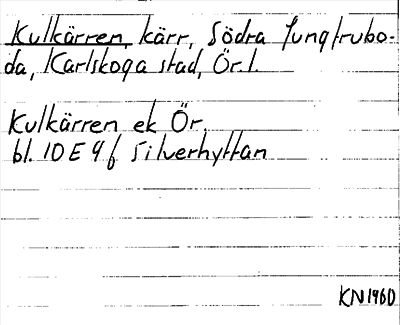 Kulkärren, kärr, Södra Jungfrubo-
da, Karlskoga stad, Ör. l.
Kulkärren ek Ör.
bl. 10 E 9 f Silverhyttan
KN 1960